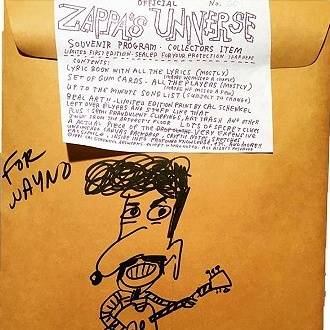 OFFICIAL
No.
ZAPPA'S UNIVERSE
SOUVENIR PROGRAM · COLLECTORS ITEM
LIMITED FIRST EDITION · SEALED FOR YOUR PROTECTION
CONTENTS:
LYRIC BOOK WITH ALL THE LYRICS (MOSTLY)
SET OF GUM CARDS · ALL THE PLAYERS (MOSTLY)
UP TO THE MINUTE SONG LIST (SUBJECT TO CHANGE)
REAL ART · LIMITED EDITION PRINT BY CAL SCHENKEL
LEFT OVER FLYERS AND STUFF LIKE THAT
CLIPPINGS, ART TRASH AND OTHER
JUNK FROM THE ARTIST'S FLOOR LOTS OF SECRET CLUES
A ACTUAL PIECE OF THE VERY EXPENSIVE
CANVAS BACKDROP
ALL RIGHTS RESERVED
FOR
WAYNO